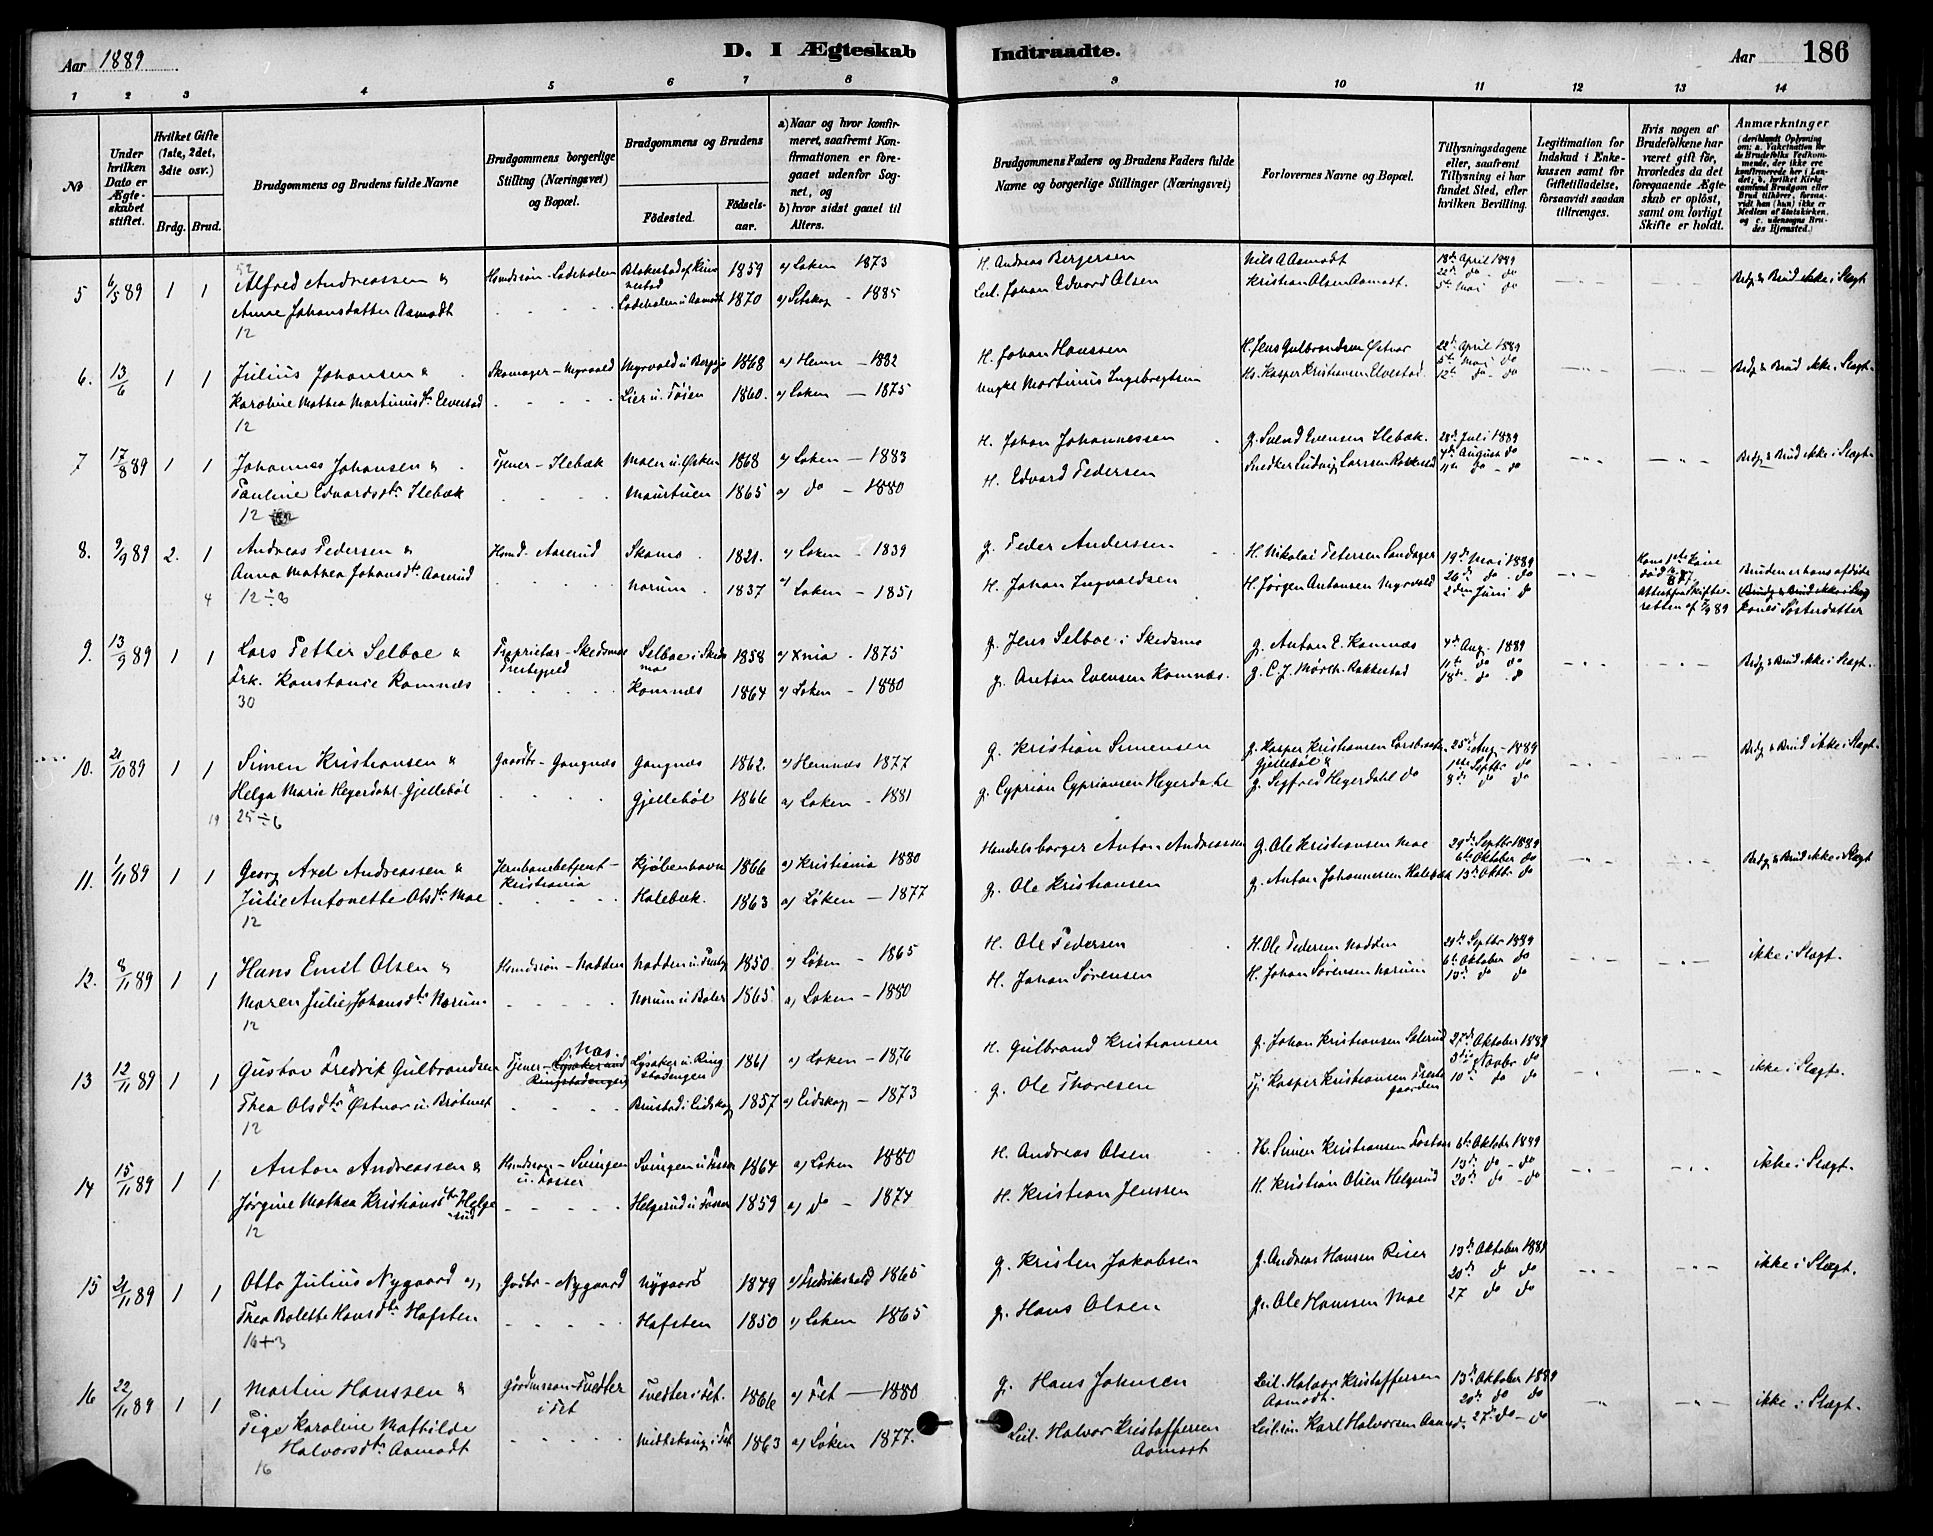 Aar 1889
D. I Ægteskab Indtraadte.
Aar 186
1 2 3 4 5 6 7 8 9 10 11 12 13 14
No
Under hvilken Dato er Ægteskabet stiftet.
Hvilket Gifte (1ste, 2det, 3die osv.)
Brdg. Brud.
Brudgommens og Brudens fulde Navne
Brudgommens borgerlige Stilling (Næringsvei) og Bopæl.
Brudgommens og Brudens
Födested. Födselsaar.
a) Naar og hvor konfirmeret, saafremt Konfirmationen er foregaaet udenfor Sognet, og
b) hvor sidst gaaet til Alters.
Brudgommens Faders og Brudens Faders fulde Navne og borgerlige Stillinger (Næringsvei)
Forlovernes Navne og Bopæl.
Tillysningsdagene eller, saafremt Tillysning ei har fundet Sted, efter hvilken Bevilling.
Legitimation for Indskud i Enkekassen samt for Giftetilladelse, forsaavidt saadan tiltrænges.
Hvis nogen af Brudefolkene har været gift før, hvorledes da det foregaaende Ægteskab er oplöst, samt om lovligt Skifte er holdt.
Anmærkninger
5 6/5 89 1 1 Alfred Andreassen & Husmdssøn - Ladeholen 1859 a) Løken 1873 H. Andreas Bergersen Nils A Aamodt 18de April 1889 Brdg & Brud ikke i Slægt
Anne Johansdatter Aamodt Ladeholen u Aamodt 1870 a) Setskog - 1885 Leil. Johan Edvard Olsen Kristian Olsen Aamodt. 22de do do
12 5te Mai do
6. 13/6 1 1 Julius Johansen & Skomager - Myrvold Myrvold u Bergsjø 1868 a) Hemnes - 1882 H. Johan Hanssen H. Jens Gulbrandsen Østnor 22de April 1889 Brdg & Brud ikke i Slægt
Karoline Mathea Martinusdtr Elvestad Lier u. Tøien 1860. a) Løken - 1875 Ungkl Martinus Ingebregtsen Hs. Kasper Kristiansen Elvestad. 5te Mai do
12 12te do - do
7 17/8 89 1 1 Johannes Johansen & Tjener - Ilebæk Moen u. Østen 1868 a) Løken - 1883 H. Johan Johannessen g. Svend Evensen Ilebæk. 28de Juli 1889 Brdg & Brud ikke i Slægt
Pauline Edvardsdtr Ilebæk Maurtuen 1865 a) do - 1880 H. Edvard Pedersen Snedker Ludvig Larssen Rakkestad 4de August do
12 11te do - do
8. 2/9 89 2. 1 Andreas Pedersen & Husmd. Aaserud Skamo 1821. a) Løken 1839 g. Peder Anderssen H. Nikolai Petersen Sandager 19de Mai 1889 Hans 1ste Kone død
Anna Mathea Johansdtr Aaserud Norum 1837 a) Løken - 1851 H. Johan Ingvaldsen H. Jørgen Antonsen Myrvold 26de do do Bruden er hans afdøde
4 12÷8 2den Juni do Attest fra Skifteretten af 2/9 89 Kones Søsterdatter
9. 13/9 89 1 1 Lars Petter Selboe & Proprietær - Skedsmo Præstegjeld Selboe i Skedsmo 1858 a) Xnia - 1875 g. Jens Selboe i Skedsmo g. Anton E. Komnæs 4de Aug. 1889 Brdg & Brud ikke i Slægt
Frk. Konstance Komnæs Komnæs 1864 a) Løken - 1880 g. Anton Evensen Komnæs. g. C. J. Mørch. Rakkestad 11te do do
30 18de do do
10. 21/10 89 1 1 Simen Kristiansen & Gaardbr - Gangnæs Gangnæs 1862. a) Hemnæs 1877 g. Kristian Simensen g. Kasper Kristiansen 25de Aug - 1889 Brdg & Brud ikke i Slægt
Helga Marie Heyerdahl Gjellebøl Gjellebøl 1866 a) Løken - 1881 g. Cyprian Cypriansen Heyerdahl Gjellebøl & g. Sigfred Heyerdahl do 1ste Septbr do
19 25÷6 8de do do
11. 1/11 89 1 1 Georg Axel Andreassen & Jernbanebetjent - Kristiania Kjøbenhavn 1866 a) Kristiania 1880 Handelsborger Anton Andreassen g. Ole Kristiansen Moe 29de Septbr 1889 Brdg & Brud ikke i Slægt
Julie Antonette Olsdtr Moe Holebæk. 1863 a) Løken - 1877 g. Ole Kristiansen g. Anton Johannesen Holebæk 6te Oktober do
12 13de Oktbr do
12. 8/11 89 1 1 Hans Emil Olsen & Husmdssøn - Nadden 1850 a) Løken - 1865 H. Ole Pedersen H. Ole Pedersen Nadden 29de Septbr 1889 ikke i Slægt.
Maren Julie Johansdtr Norum Norum u Boler 1865. a) Løken - 1880 H. Johan Sørensen H. Johan Sørensen Norum 6te Oktober do
12 13de do do
13 12/11 89 1 1 Gustav Fredrik Gulbrandsen Tjener - Næs Lysaker u. Ringstadengen 1861 a) Løken - 1876 H. Gulbrand Kristiansen g. Johan Kristiansen 27de Oktober 1889 ikke i Slægt.
Thea Olsdtr Østnor u. Bråtnet Brustad i Eidskog 1857 a) Eidskog - 1873 g. Ole Thoresen Tj. Kasper Kristiansen Prestegaarden 3die Novbr do
12 10de do do
14 15/11 89 1 1 Anton Andreassen & Husmdssøn - Svingen u. Fosser Svingen u Fosser 1864 a) Løken 1880 H. Andreas Olsen Hs. Simen Kristiansen 6te Oktober 1889 ikke i Slægt.
Jørgine Mathea Kristiansdtr Helgerud Helgerud u Fosser 1859 a) do - 1874 H. Kristian Jenssen H. Kristian Olsen Helgerud 13de do - do
12 20de do - do
15 21/11 89 1 1 Otto Julius Nygaard og Gdbr. - Nygaard Nygaard 1849 a) Fredrikshald 1865 g. Kristen Jakobsen g. Andreas Hansen Riser 13de Oktober 1889 ikke i Slægt.
Thea Bolette Hansdtr Hafsten Hafsten 1850 a) Løken 1865 g. Hans Olsen g. Ole Hanssen Moe 20de do do
16+3 27 do do
16 22/11 89 1 1 Martin Hanssen & Gårdmssøn - Tvedter i Fet Tvedter i Fet. 1866 a) Fet - 1880 g. Hans Johnsen Leil. Halvor Kristoffersen Aamodt. 13de Oktober 1889 ikke i Slægt.
Pige Karoline Mathilde Halvorsdtr Aamodt 1863 a) Løken 1877. Leil. Halvor Kristoffersen Aamodt Leil.søn Karl Halvorsen 20de do do
16 27de do - do